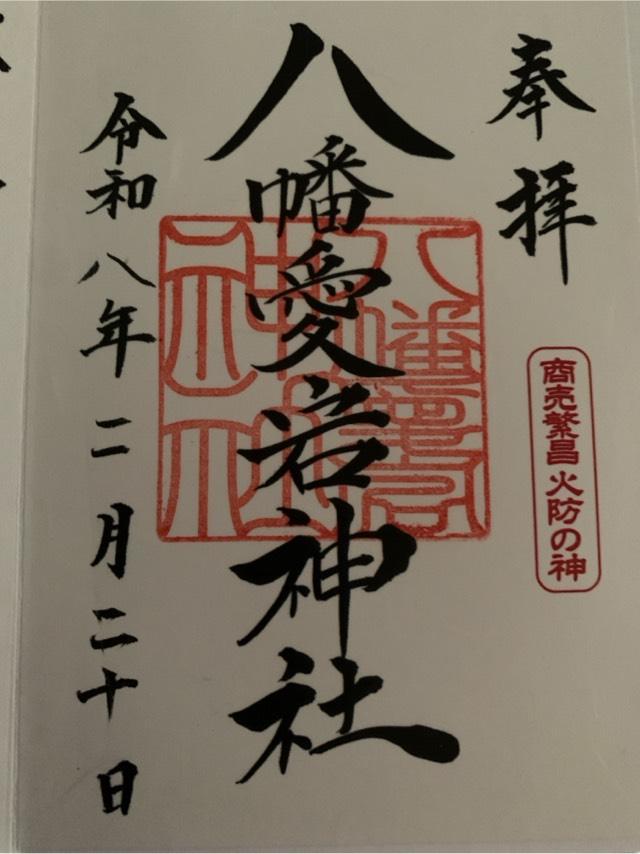 奉拝
商売繁昌 火防の神
八幡愛宕神社
令和八年二月二十日